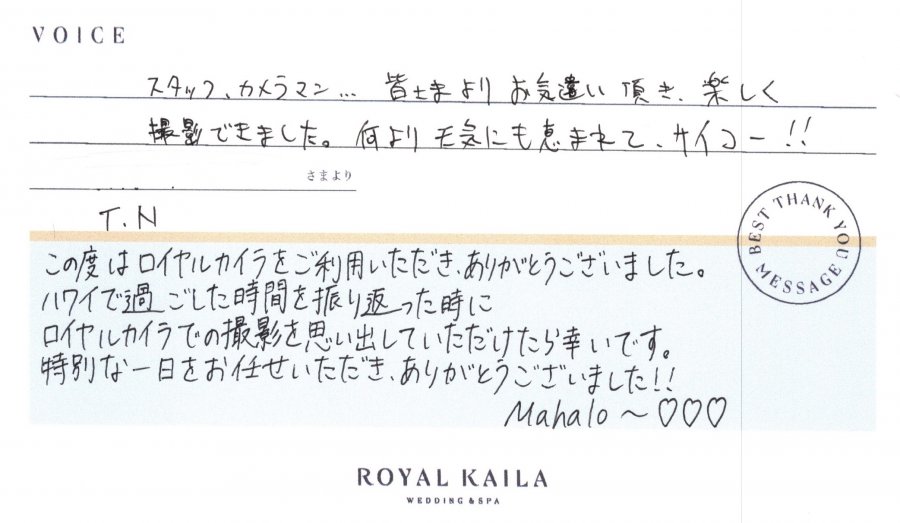 VOICE
スタッフ、カメラマン… 皆さまより お気遣い 頂き、楽しく
撮影できました。何より 天気にも恵まれて、サイコー!!
さまより
T.N
BEST THANK YOU MESSAGE
この度はロイヤルカイラをご利用いただき、ありがとうございました。
ハワイで過ごした時間を振り返った時に
ロイヤルカイラでの撮影を思い出していただけたら幸いです。
特別な一日をお任せいただき、ありがとうございました!!
Mahalo～♡♡♡
ROYAL KAILA
WEDDING & SPA